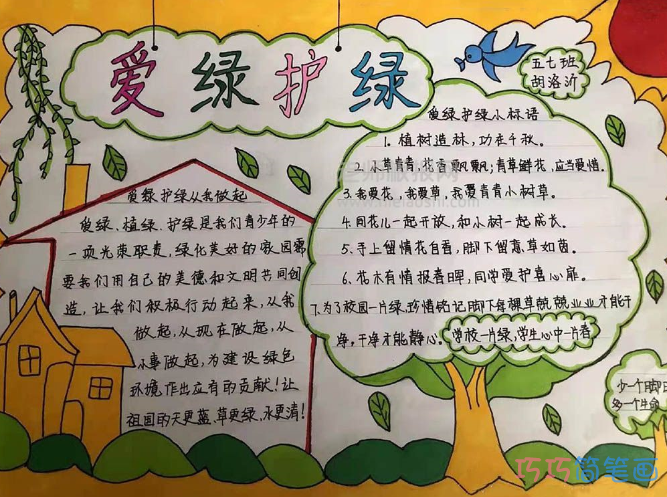 爱绿护绿
五七班
胡洛沂
爱绿护绿小标语
1. 植树造林，功在千秋。
2. 小草青青，花香飘飘；青草鲜花，应当爱惜。
3. 我爱花，我爱草，我爱青青小树草。
4. 同花儿一起开放，和小树一起成长。
5. 手上留情花自香，脚下留意草如茵。
6. 花木有情报春晖，同学爱护喜心扉。
7. 为了校园一片绿，珍惜铭记脚下每棵草
净，干净才能静心。
学校一片绿，学生心中一片春
爱绿护绿从我做起
爱绿、植绿、护绿是我们青少年的
一项光荣职责，绿化美好的家园需
要我们用自己的美德和文明共同创
造，让我们积极行动起来，从我
做起，从现在做起，从
小事做起，为建设绿色
环境作出应有的贡献！让
祖国的天更蓝，草更绿，水更清！
少一个脚印
多一个生命
巧巧简笔画